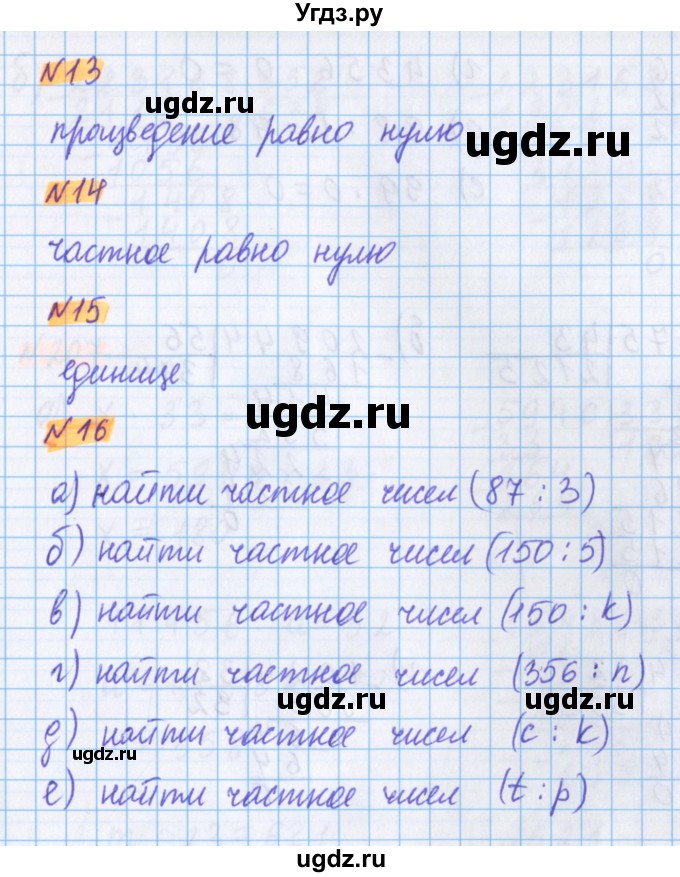 Угдз.ру
N13
ugdz.ru
произведение равно нулю
ugdz.ru
N14
ugdz.ru
частное равно нулю
N15
единице
ugdz.ru
N16
а) найти частное чисел (87 : 3)
б) найти частное чисел (150 : 5)
в) найти частное чисел (150 : k)
г) найти частное чисел (356 : n)
ugdz.ru
д) найти частное чисел (c : k)
ugdz.ru
е) найти частное чисел (t : p)
ugdz.ru